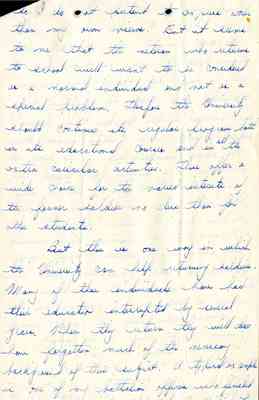 do is not pretend to
than my own views. But it seems
to me that the veteran who returns
to school will want to be considered
as a normal individual and not as a
special problem. Therefore the University
should continue its regular program both
in its educational courses and in all the
extra curricular activities. This offers a
wide choice for the varied interests of
the former soldier no less than for
other students.
But there is one way in which
the University can help returning soldiers.
Many of these individuals have had
their education interrupted by several
years. When they return they will
have forgotten much of the necessary
background of their subject. A typical example
is one of my battalion officers who